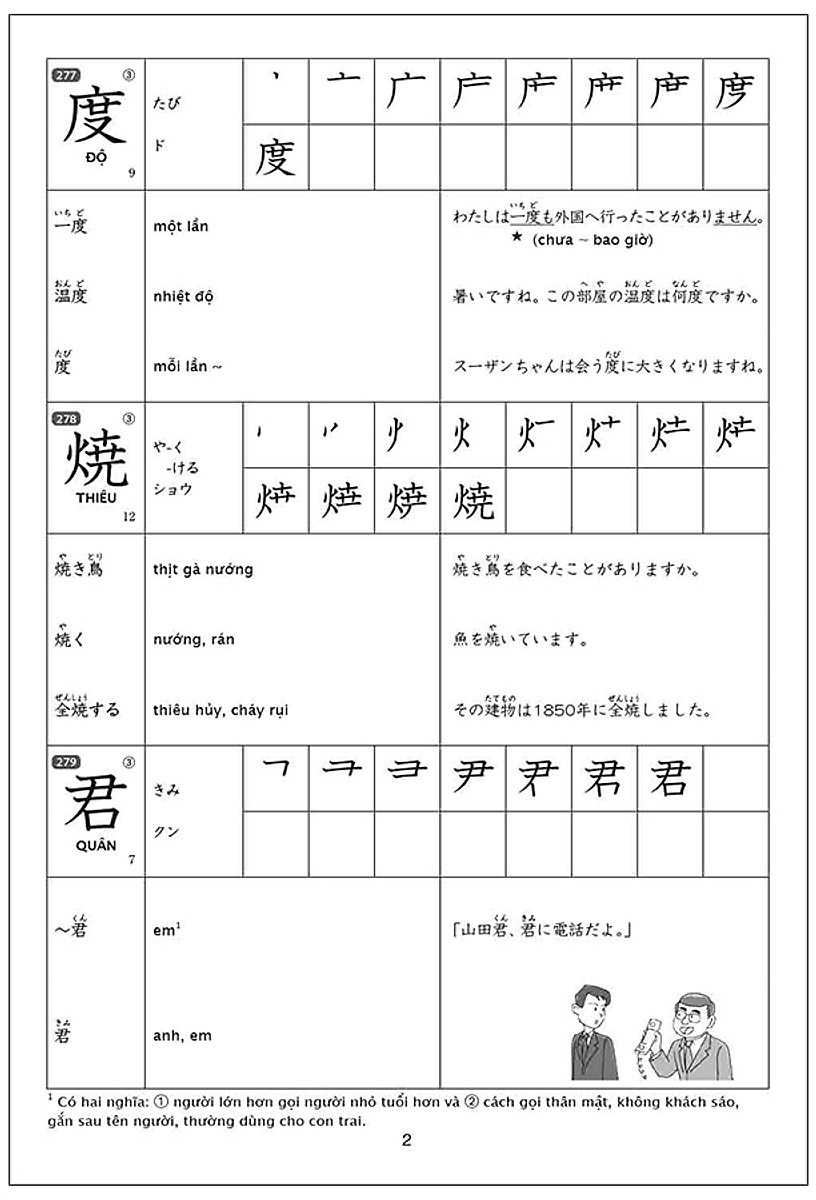 277 ③
度
ĐỘ
9
たび
ド
丶 亠 广 度
度
いちど
一度
một lần
いちど
わたしは一度も外国へ行ったことがありません。
★ (chưa ~ bao giờ)
おんど
温度
nhiệt độ
へや おんど なんど
暑いですね。この部屋の温度は何度ですか。
たび
度
mỗi lần ~
たび
スーザンちゃんは会う度に大きくなりますね。
278 ③
焼
THIÊU
12
や-く
-ける
ショウ
火
焼
や とり
焼き鳥
thịt gà nướng
や とり
焼き鳥を食べたことがありますか。
や
焼く
nướng, rán
や
魚を焼いています。
ぜんしょう
全焼する
thiêu hủy, cháy rụi
たてもの ぜんしょう
その建物は1850年に全焼しました。
279 ③
君
QUÂN
7
きみ
クン
尹 君
くん
～君
em¹
くん きみ
「山田君、君に電話だよ。」
きみ
君
anh, em
¹ Có hai nghĩa: ① người lớn hơn gọi người nhỏ tuổi hơn và ② cách gọi thân mật, không khách sáo,
gắn sau tên người, thường dùng cho con trai.
2